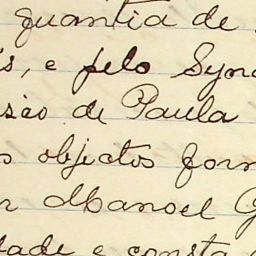 quantia de
s, e pelo Syn
são de Paula
s objectos for
r Manoel G
dade e consta